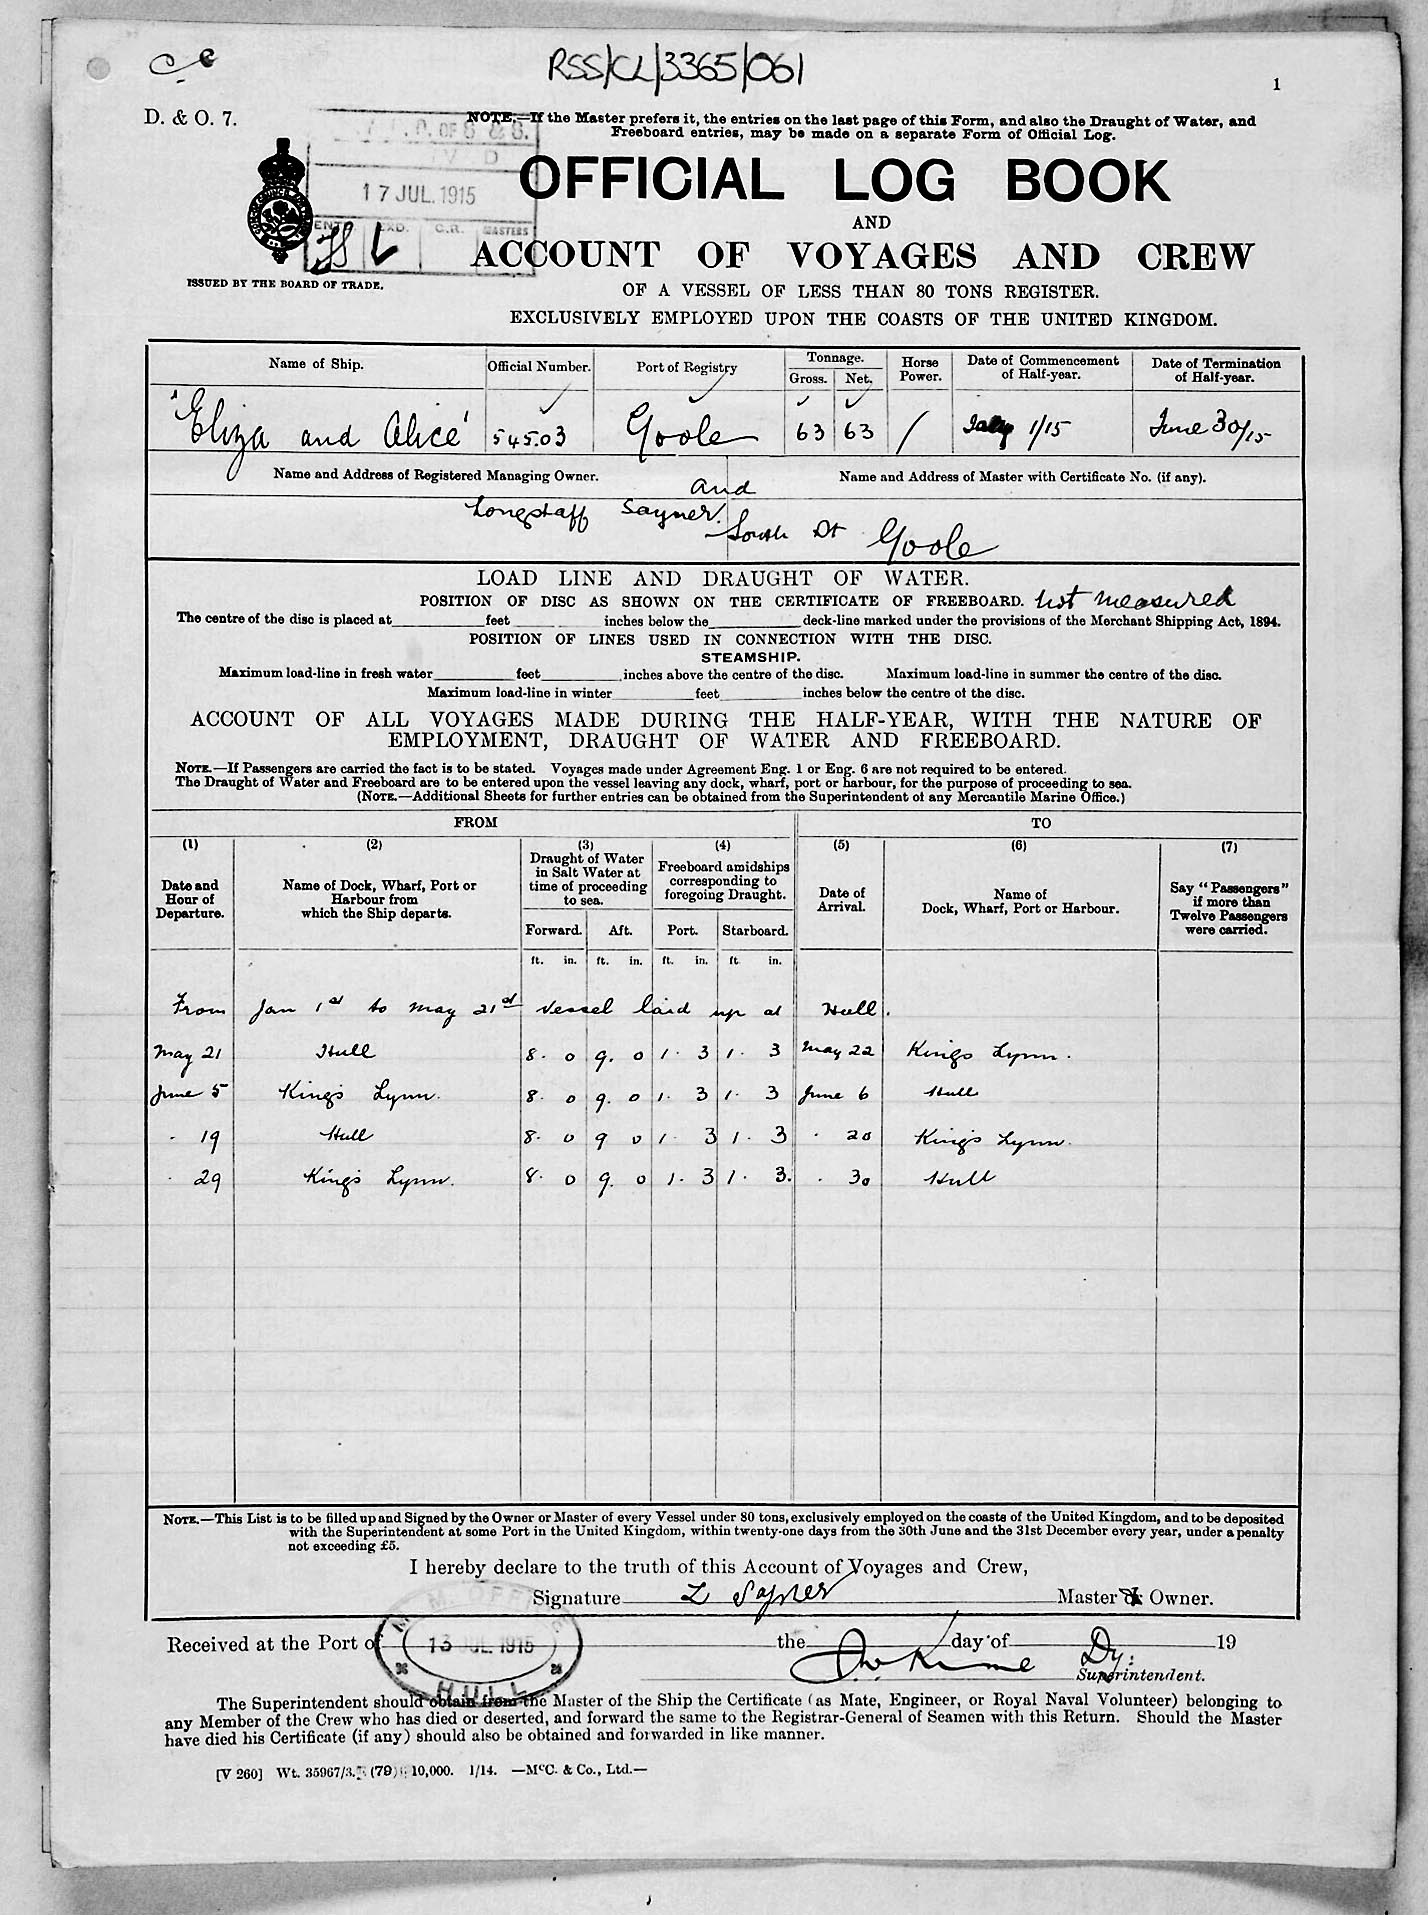 RSS/CL/3365/061
1
D. & O. 7.
NOTE.—If the Master prefers it, the entries on the last page of this Form, and also the Draught of Water, and
Freeboard entries, may be made on a separate Form of Official Log.
17 JUL. 1915
OFFICIAL LOG BOOK
AND
ACCOUNT OF VOYAGES AND CREW
C.R. MASTERS
ISSUED BY THE BOARD OF TRADE.
OF A VESSEL OF LESS THAN 80 TONS REGISTER.
EXCLUSIVELY EMPLOYED UPON THE COASTS OF THE UNITED KINGDOM.
Name of Ship. Official Number. Port of Registry Tonnage. Gross. Net. Horse Power. Date of Commencement of Half-year. Date of Termination of Half-year.
'Eliza and Alice' 54503 Goole 63 63 / 1/15 June 30/15
Name and Address of Registered Managing Owner. and Name and Address of Master with Certificate No. (if any).
Longstaff Sayner. South St Goole
LOAD LINE AND DRAUGHT OF WATER.
POSITION OF DISC AS SHOWN ON THE CERTIFICATE OF FREEBOARD. Not measured
The centre of the disc is placed at feet inches below the deck-line marked under the provisions of the Merchant Shipping Act, 1894.
POSITION OF LINES USED IN CONNECTION WITH THE DISC.
STEAMSHIP.
Maximum load-line in fresh water feet inches above the centre of the disc. Maximum load-line in summer the centre of the disc.
Maximum load-line in winter feet inches below the centre of the disc.
ACCOUNT OF ALL VOYAGES MADE DURING THE HALF-YEAR, WITH THE NATURE OF
EMPLOYMENT, DRAUGHT OF WATER AND FREEBOARD.
NOTE.—If Passengers are carried the fact is to be stated. Voyages made under Agreement Eng. 1 or Eng. 6 are not required to be entered.
The Draught of Water and Freeboard are to be entered upon the vessel leaving any dock, wharf, port or harbour, for the purpose of proceeding to sea.
(NOTE.—Additional Sheets for further entries can be obtained from the Superintendent of any Mercantile Marine Office.)
FROM TO
(1) (2) (3) (4) (5) (6) (7)
Date and Hour of Departure. Name of Dock, Wharf, Port or Harbour from which the Ship departs. Draught of Water in Salt Water at time of proceeding to sea. Freeboard amidships corresponding to foregoing Draught. Date of Arrival. Name of Dock, Wharf, Port or Harbour. Say "Passengers" if more than Twelve Passengers were carried.
Forward. Aft. Port. Starboard.
ft. in. ft. in. ft. in. ft in.
From Jan 1st to May 21st Vessel laid up at Hull.
May 21 Hull 8. 0 9. 0 1. 3 1. 3 May 22 Kings Lynn.
June 5 Kings Lynn. 8. 0 9. 0 1. 3 1. 3 June 6 Hull
" 19 Hull 8. 0 9 0 1. 3 1. 3 " 20 Kings Lynn.
" 29 Kings Lynn. 8. 0 9. 0 1. 3 1. 3. " 30 Hull
NOTE.—This List is to be filled up and Signed by the Owner or Master of every Vessel under 80 tons, exclusively employed on the coasts of the United Kingdom, and to be deposited
with the Superintendent at some Port in the United Kingdom, within twenty-one days from the 30th June and the 31st December every year, under a penalty
not exceeding £5.
I hereby declare to the truth of this Account of Voyages and Crew,
Signature L Sayner Master & Owner.
M. M. OFFICE
13 JUL 1915
HULL
Received at the Port of the day of 19
Dy: Superintendent.
The Superintendent should obtain from the Master of the Ship the Certificate (as Mate, Engineer, or Royal Naval Volunteer) belonging to
any Member of the Crew who has died or deserted, and forward the same to the Registrar-General of Seamen with this Return. Should the Master
have died his Certificate (if any) should also be obtained and forwarded in like manner.
[V 260] Wt. 35967/3. (79) 10,000. 1/14. —McC. & Co., Ltd.—